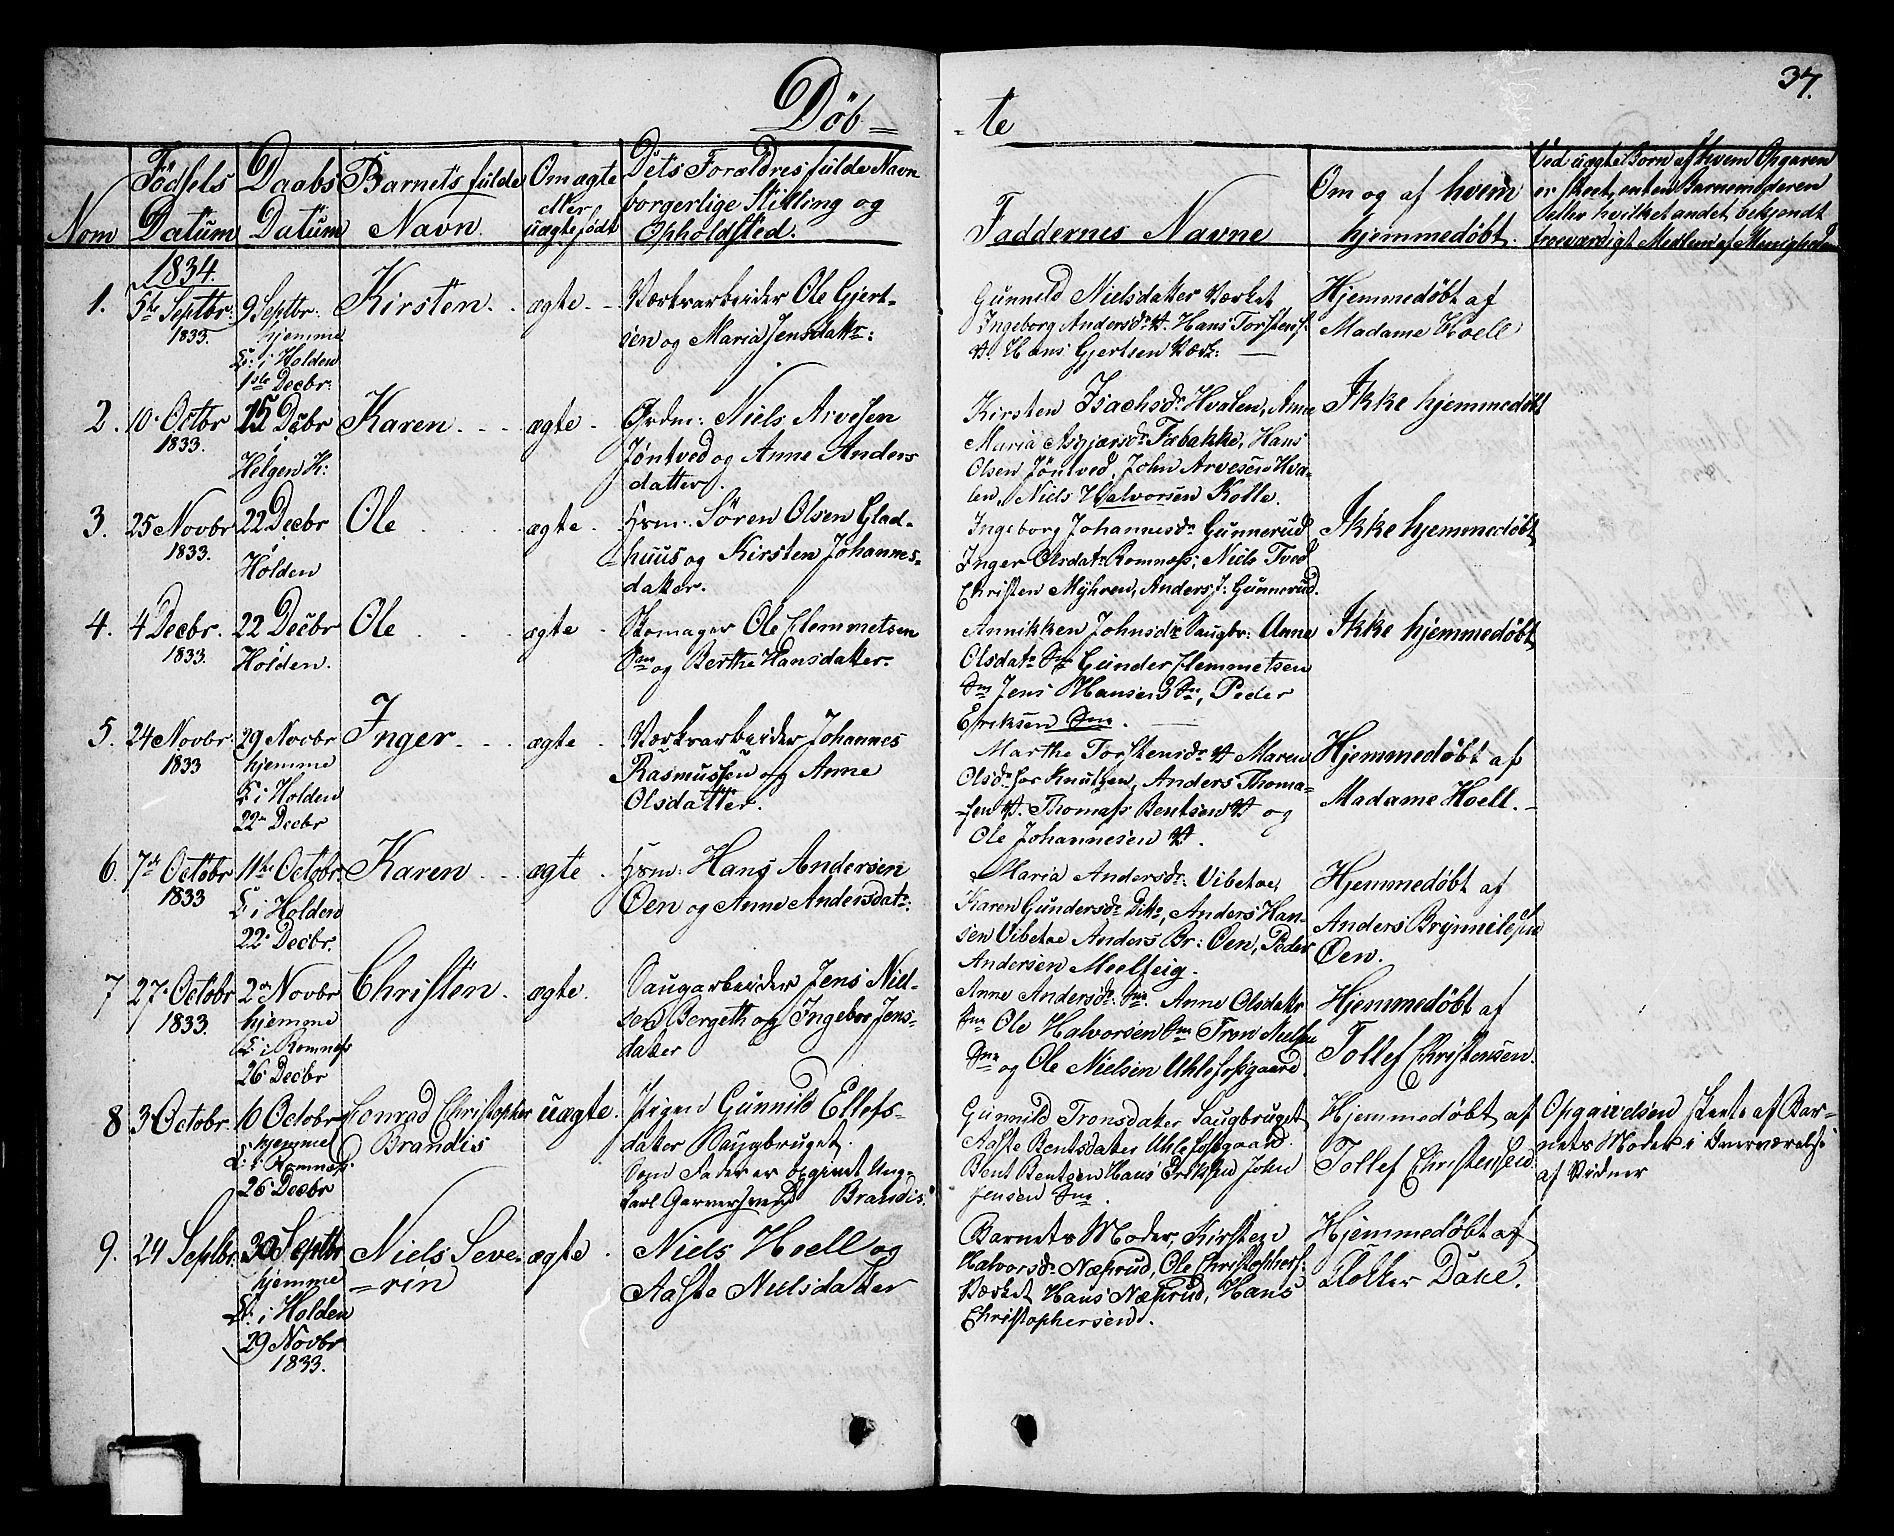 37.
Döb=
=te
Nom
Födsels Datum
Daabs Datum
Barnets fulde Navn.
Om ægte eller uægte født
Dets Forældres fulde Navn borgerlige Stilling og Opholdsted.
Faddernes Navne
Om og af hvem hjemmedøbt.
Ved uægte Børn af hvem Opgaven
er skeet, enten Barnemoderen
eller hvilket andet bekjendt
troeværdigt Medlem af Menigheden
1834.
1. 5te Septbr: 1833.
9 Septbr: hjemme
i Holden
1ste Decbr:
Kirsten
ægte
Værksarbeider Ole Gjert-
sen og Maria Jensdatr:
Gunnild Nielsdatter Værket
Ingeborg Andersdr V. Hans Torstens.
V. Hans Gjertsen Værk:
Hjemmedøbt af
Madame Hoell
2. 10. Octbr 1833.
15 Decbr
i
Helgen K:
Karen
ægte
Grdm: Niels Arvesen
Jøntved og Anne Anders
datter.
Kirsten Isachsdr Hvalen, Anne
Maria Asgjersdr Fæbakke, Hans
Olsen Jøntved, John Arvesen Hva-
len, Niels Halvorsen Kotte.
Ikke hjemmedøbt
3. 25 Novbr 1833.
22 Decbr
i
Holden
Ole
ægte
Hsm: Søren Olsen Glad-
huus og Kirsten Johannes-
datter.
Ingeborg Johannesdr Gunnerud
Inger Olsdatr Romnæss; Niels
Christen Myhren, Anders J: Gunnerud.
Ikke hjemmedøbt
4. 4 Decbr. 1833.
22 Decbr
Holden.
Ole
ægte
Skomager Ole Clemmetsen
og Berthe Hansdatter.
Annikken Johnsdr Saugbr: Anne
Olsdatr Gunder Clemmetsen
Jens Hansen Peder
Eriksen
Ikke hjemmedøbt
5. 24 Novbr. 1833
29 Novbr
hjemme
i Holden
22 Decbr
Inger
ægte
Værksarbeider Johannes
Rasmussen og Anne
Olsdatter.
Marthe Torstensdr V Maren
Olsdr for Knutsen, Anders Thoma-
sen V. Thomass Bentsen V og
Ole Johannesen V.
Hjemmedøbt af
Madame Hoell.
6. 7de Octobr 1833
11te Octobr.
i Holden
22 Decbr.
Karen
ægte
Hsm: Hans Andersen
Øen og Anne Andersdatr:
Maria Andersdr: Vibetoe,
Karen Gundersdr Anders Han-
sen Vibetoe Anders Br: Øen, Peder
Andersen Meelteig.
Hjemmedøbt af
Anders Brynnilsen
Øen.
7 27 Octobr 1833.
2 Novbr
hjemme
i Romnæss
26 Decbr
Christen
ægte.
Saugarbeider Jens Niel-
sen Bergeth og Ingebor Jens-
datter
Anne Andersdr: Anne Olsdatr
Ole Halvorsen Tron Nielsen
og Ole Nielsen Uhlefossgaard.
Hjemmedøbt af
Tollef Christensen.
8 3 Octobr.
6 Octobr
hjemme
i Romnæs:
26 Decbr
Conrad Christopher
Brandis
uægte.
Pigen Gunnild Ellefs-
datter Saugbruget.
Som Fader er opgivet Ung-
karl Garversvend Brandis
Gunnild Tronsdatter Saugbruget
Aaste Bentsdatter Uhlefossgaard.
Bent Bentsen Hans Eriksen John
Jensen
Hjemmedøbt af
Tollef Christensen
Opgaven skeete af Bar-
nets Moder i Overværelse
af Vidner
9. 24 Septbr.
30 Septbr
hjemme
i Holden
29 Novbr
1833.
Niels Seve-
=rin
ægte
Niels Hoell og
Aaste Nielsdatter
Barnets Moder, Kirstene
Halvorsdr Næsrud, Ole Christophers:
Værket Hans Næsrud, Hans
Christophersen.
Hjemmedøbt af